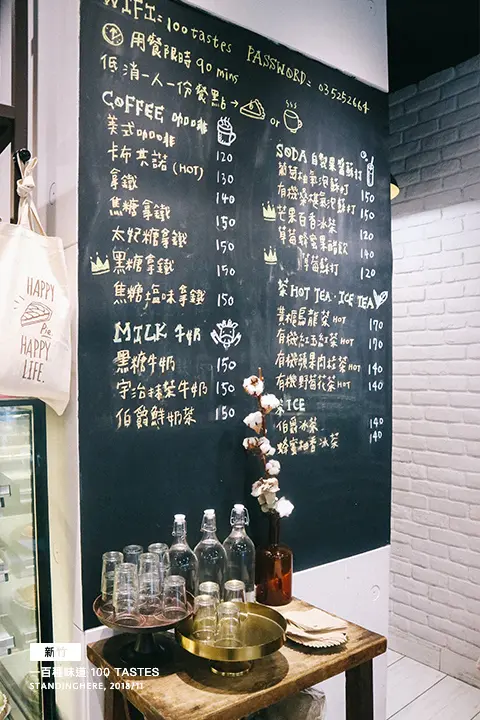 WIFI = 100tastes PASSWORD = 035252664
用餐限時 90 mins
低消一人一份餐點 → or
COFFEE 咖啡
美式咖啡 120
卡布其諾 (HOT) 130
拿鐵 140
焦糖拿鐵 150
太妃糖拿鐵 150
黑糖拿鐵 150
焦糖塩味拿鐵 150
MILK 牛奶
黑糖牛奶 150
宇治抹茶牛奶 150
伯爵鮮奶茶 150
SODA 自製果醬蘇打
葡萄柚氣泡蘇打 150
有機桑椹氣泡蘇打 150
芒果百香冰茶 120
草莓蜂蜜果醋飲 140
草莓蘇打 120
茶 HOT TEA · ICE TEA
黃糖烏龍茶 HOT 170
有機紅玉紅茶 HOT 170
有機蘋果肉桂茶 HOT 140
有機野菊花茶 HOT 140
茶 ICE
伯爵冰茶 140
蜂蜜柚香冰茶 140
HAPPY
Pie
HAPPY
LIFE.
新竹
一百種味道 100 TASTES
STANDINGHERE, 2018/11